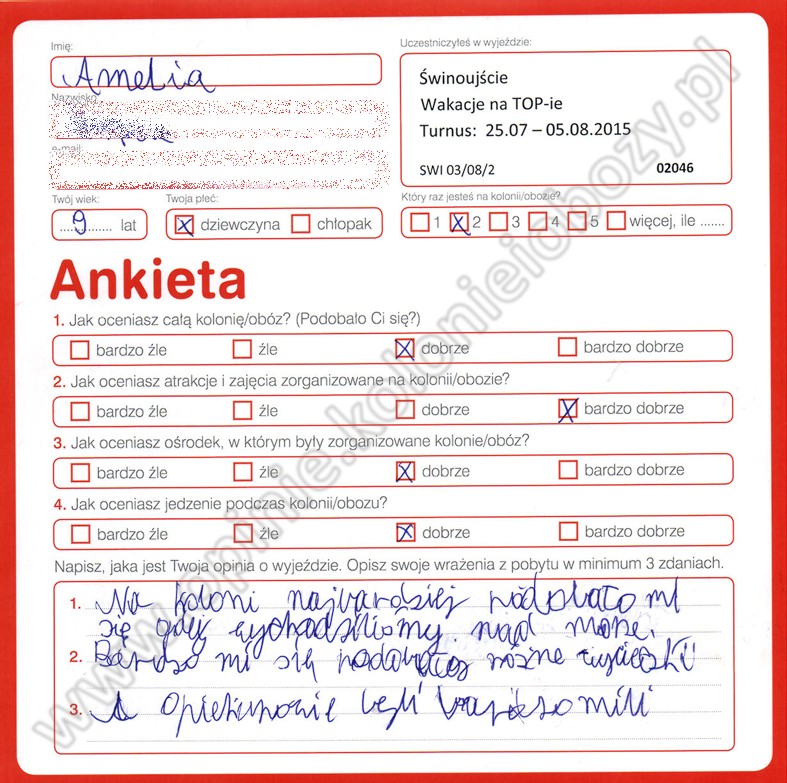 Imię:
Amelia
Nazwisko
e-mail:
Uczestniczyłeś w wyjeździe:
Świnoujście
Wakacje na TOP-ie
Turnus: 25.07 – 05.08.2015
SWI 03/08/2 02046
Twój wiek:
9 lat
Twoja płeć:
dziewczyna chłopak
Który raz jesteś na kolonii/obozie?
1 2 3 4 5 więcej, ile .......
Ankieta
1. Jak oceniasz całą kolonię/obóz? (Podobało Ci się?)
bardzo źle źle dobrze bardzo dobrze
2. Jak oceniasz atrakcje i zajęcia zorganizowane na kolonii/obozie?
bardzo źle źle dobrze bardzo dobrze
3. Jak oceniasz ośrodek, w którym były zorganizowane kolonie/obóz?
bardzo źle źle dobrze bardzo dobrze
4. Jak oceniasz jedzenie podczas kolonii/obozu?
bardzo źle źle dobrze bardzo dobrze
Napisz, jaka jest Twoja opinia o wyjeździe. Opisz swoje wrażenia z pobytu w minimum 3 zdaniach.
1. Na koloni najbardziej podobało mi
się gdy wychodziliśmy nad morze.
2. Bardzo mi się podobały różne wycieczki
3. A opiekunowie byli bardzo mili
www.opinie.kolonieiobozy.pl